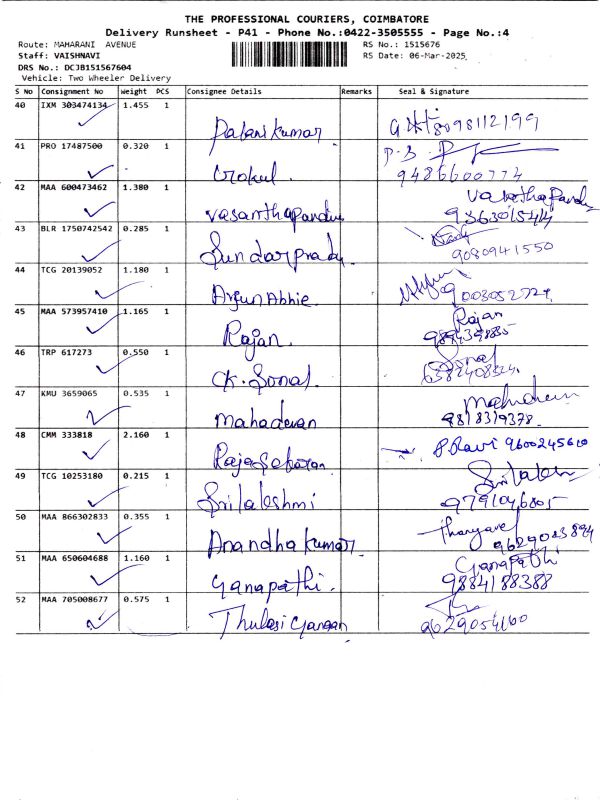 THE PROFESSIONAL COURIERS, COIMBATORE
Delivery Runsheet - P41 - Phone No.:0422-3505555 - Page No.:4
Route: MAHARANI AVENUE RS No.: 1515676
Staff: VAISHNAVI RS Date: 06-Mar-2025
DRS No.: DCJB151567604
Vehicle: Two Wheeler Delivery
S No Consignment No Weight PCS Consignee Details Remarks Seal & Signature
40 IXM 303474134 1.455 1
Palanikumar 8098112199
41 PRO 17487500 0.320 1
Gokul. 9486600774
42 MAA 600473462 1.380 1
Vasanthapandu VasanthaPandu
43 BLR 1750742542 0.285 1
Sundarprady. 9080941550
44 TCG 20139052 1.180 1
Arjun Abhie 9003052729
45 MAA 573957410 1.165 1
Rajan. Rajan
46 TRP 617273 0.550 1
CK. Sonal. Sonal
6382408324.
47 KMU 3659065 0.535 1
Mahadevan
9818319378.
48 CMM 333818 2.160 1
Rajasekaran P.Ravi 9600245610
49 TCG 10253180 0.215 1
Srilakshmi
9791046805
50 MAA 866302833 0.355 1
Anandhakumar 9629083894
51 MAA 650604688 1.160 1
Ganapathi. Ganapathi
9884188388
52 MAA 705008677 0.575 1
Thulasi Gangan 9629054160